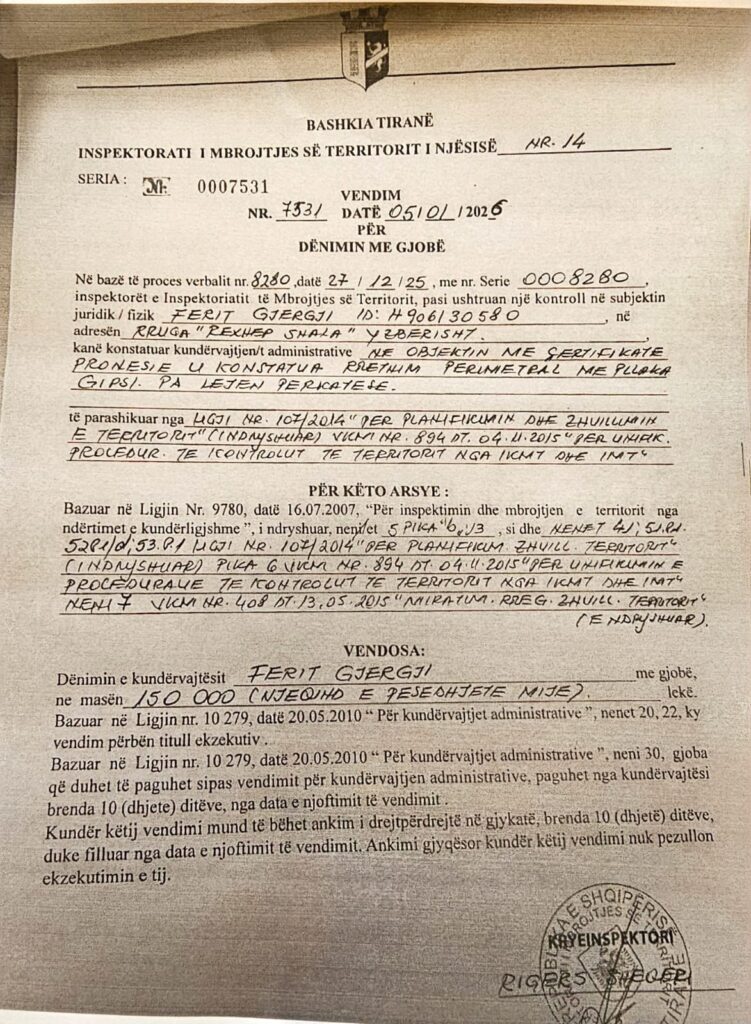 BASHKIA TIRANË
INSPEKTORATI I MBROJTJES SË TERRITORIT I NJËSISË NR. 14
SERIA : Nr. 0007531
VENDIM
NR. 7531 DATË 05/01/2026
PËR
DËNIMIN ME GJOBË
Në bazë të proces verbalit nr. 8280 ,datë 27 / 12 / 25 , me nr. Serie 0008280 ,
inspektorët e Inspektoriatit të Mbrojtjes së Territorit, pasi ushtruan një kontroll në subjektin
juridik / fizik FERIT GJERGJI ID: H90613058O , në
adresën RRUGA "REXHEP SHALA" YZBERISHT.
kanë konstatuar kundërvajtjen/t administrative NE OBJEKTIN ME ÇERTIFIKATE
PRONESIE U KONSTATUA RRETHIM PERIMETRAL ME PLLAKA
GIPSI. PA LEJEN PERKATESE.
të parashikuar nga LIGJI NR. 107/2014 "PER PLANIFIKIMIN DHE ZHVILLIMIN
E TERRITORIT" (INDRYSHUAR) VKM NR. 894 DT. 04.11.2015 "PER UNIFIK.
PROCEDUR. TE KONTROLLIT TE TERRITORIT NGA IKMT DHE IMT"
PËR KËTO ARSYE :
Bazuar në Ligjin Nr. 9780, datë 16.07.2007, "Për inspektimin dhe mbrojtjen e territorit nga
ndërtimet e kundërligjshme ", i ndryshuar, neni/et 5 PIKA "b, /3 , si dhe NENET 41; 51.P.1.
52P.1/d; 53.P.1 LIGJI NR. 107/2014 "PER PLANIFIKIM. ZHVILL. TERRITORIT"
(INDRYSHUAR) PIKA 6 VKM NR. 894 DT. 04.11.2015 "PER UNIFIKIMIN E
PROCEDURAVE TE KONTROLLIT TE TERRITORIT NGA IKMT DHE IMT"
NENI 7 VKM NR. 408 DT. 13.05.2015 "MIRATIM. RREG. ZHVILL. TERRITORIT"
(E NDRYSHUAR).
VENDOSA:
Dënimin e kundërvajtësit FERIT GJERGJI me gjobë,
ne masën 150 000 (NJEQIND E PESEDHJETE MIJE). lekë.
Bazuar në Ligjin nr. 10 279, datë 20.05.2010 " Për kundërvajtjet administrative ", nenet 20, 22, ky
vendim përbën titull ekzekutiv .
Bazuar në Ligjin nr. 10 279, datë 20.05.2010 " Për kundërvajtjet administrative ", neni 30, gjoba
që duhet të paguhet sipas vendimit për kundërvajtjen administrative, paguhet nga kundërvajtësi
brenda 10 (dhjete) ditëve, nga data e njoftimit të vendimit .
Kundër këtij vendimi mund të bëhet ankim i drejtpërdrejtë në gjykatë, brenda 10 (dhjetë) ditëve,
duke filluar nga data e njoftimit të vendimit. Ankimi gjyqësor kundër këtij vendimi nuk pezullon
ekzekutimin e tij.
KRYEINSPEKTORI
RIGERS SHEQERI